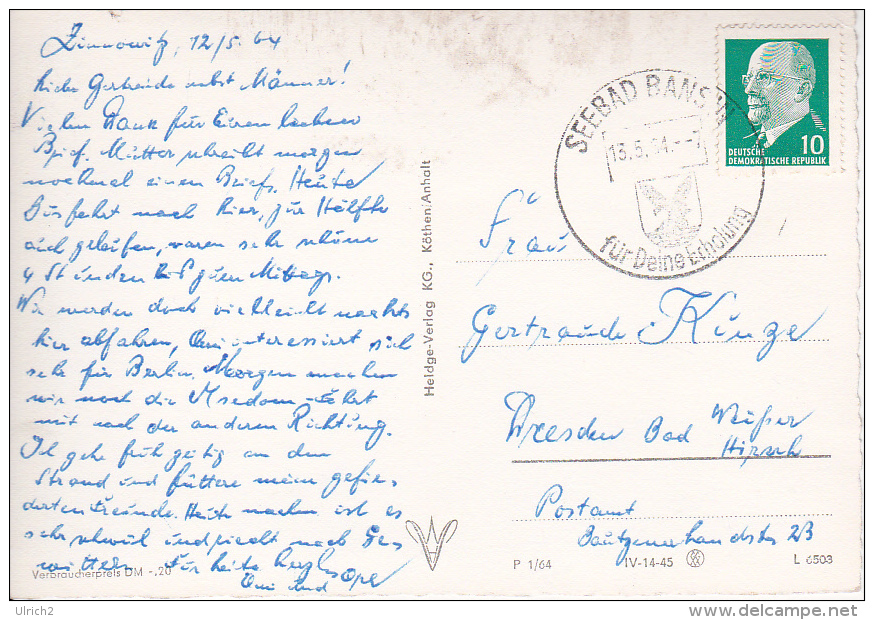 Zinnowitz, 12/5. 64
Liebe Gertraude nebst Männer!
Vielen Dank für Euren lieben
Brief. Mutter schreibt morgen
nochmal einen Brief. Heute
Bus fahrt nach hier, zur Hälfte
auch gelaufen, waren sehr schöne
4 Stunden Mittags.
Wir werden doch vielleicht nachts
hier abfahren, Omi interessiert sich
sehr für Berlin. Morgen machen
wir noch die Usedom-Fahrt
mit nach der anderen Richtung.
Ich gehe frühzeitig an den
Strand und füttere meine gefie-
derten Freunde. Heute nachm ist es
sehr schwül und riecht nach Ge-
wittern. Für heite herzl
Omi und Opa
Verbraucherpreis DM -.20
Heldge-Verlag KG., Köthen/Anhalt
SEEBAD BANSIN
13.5.64.--7
für Deine Erholung
10
DEUTSCHE
DEMOKRATISCHE REPUBLIK
Frau
Gertraude Kunze
Dresden Bad Weißer
Hirsch
Postamt
Bautzenerlandstr 23
P 1/64 IV-14-45 L 6503
Ulrich2
www.delcampe.net